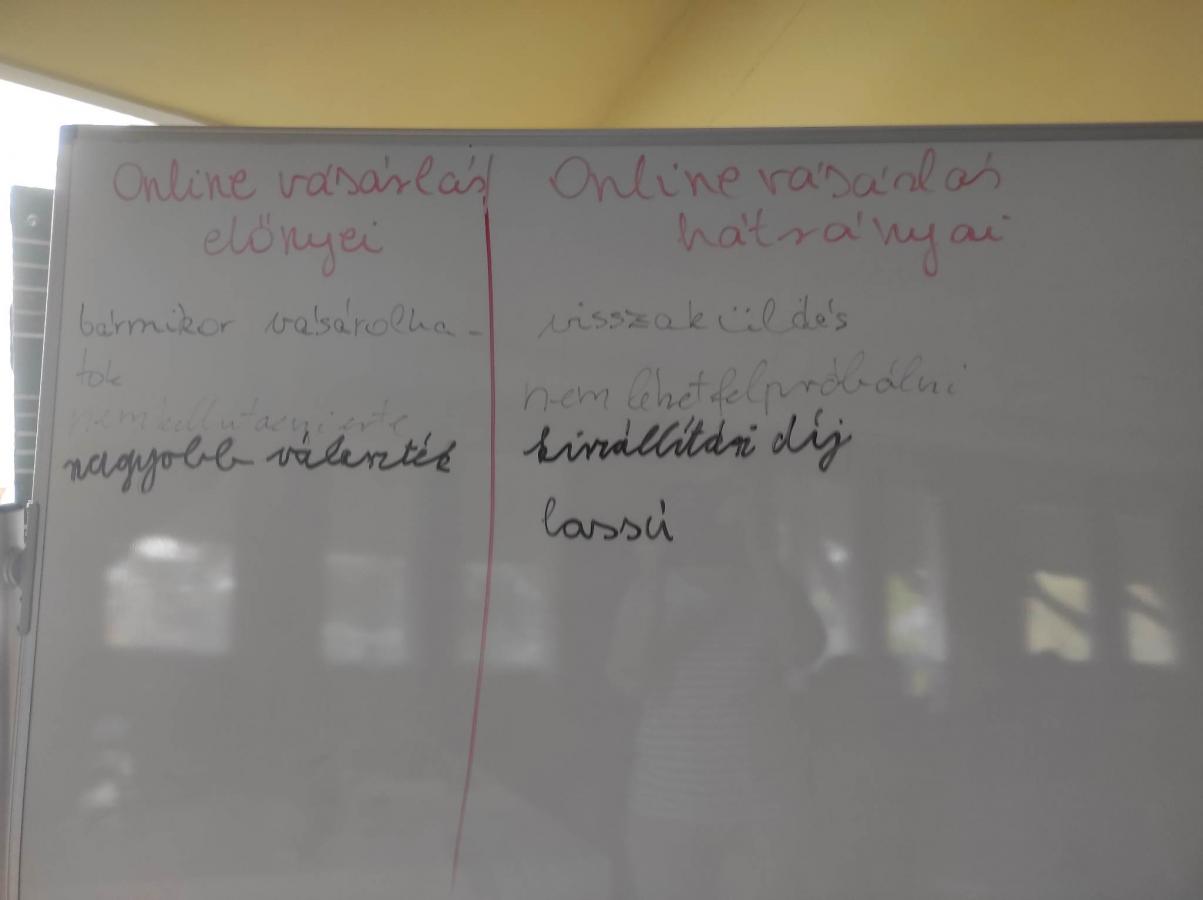 Online vásárlás
előnyei
bármikor vásárolha-
tok
nem kell utazni érte
nagyobb választék
Online vásárlás
hátrányai
visszaküldés
nem lehet felpróbálni
kiszállítási díj
lassú